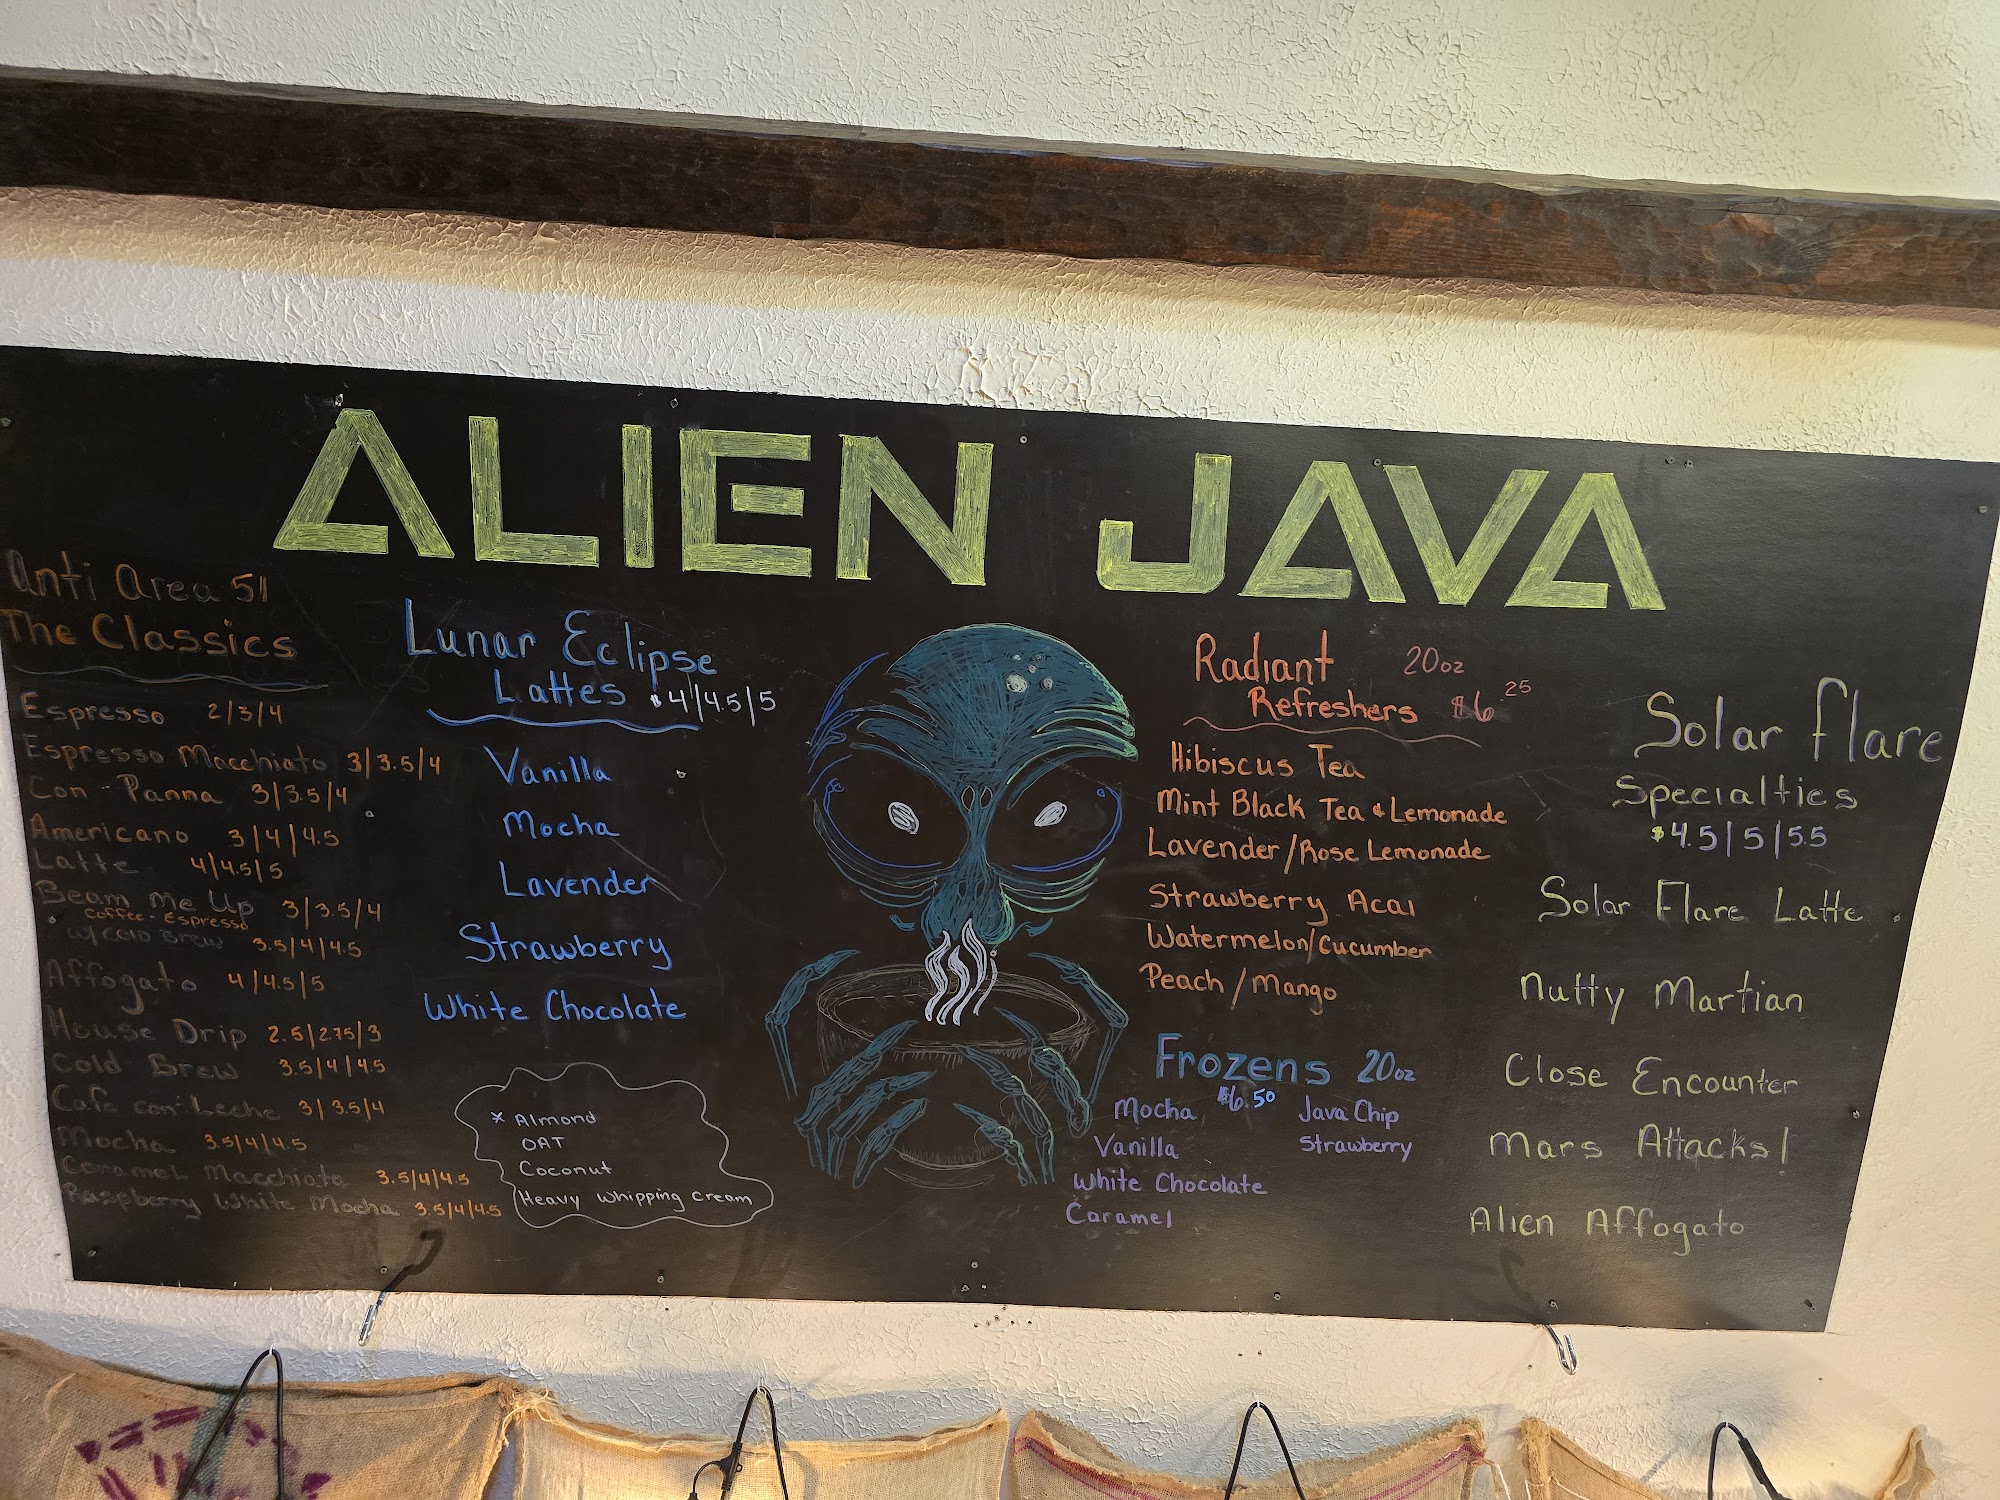 ALIEN JAVA
Anti Area 51
The Classics
Espresso 2/3/4
Espresso Macchiato 3/3.5/4
Con-Panna 3/3.5/4
Americano 3/4/4.5
Latte 4/4.5/5
Beam Me Up 3/3.5/4
Coffee-Espresso
w/ Cold Brew 3.5/4/4.5
Affogato 4/4.5/5
House Drip 2.5/2.75/3
Cold Brew 3.5/4/4.5
Cafe con Leche 3/3.5/4
Mocha 3.5/4/4.5
Caramel Macchiato 3.5/4/4.5
Raspberry White Mocha 3.5/4/4.5
Lunar Eclipse
Lattes $4/4.5/5
Vanilla
Mocha
Lavender
Strawberry
White Chocolate
* Almond
OAT
Coconut
Heavy Whipping Cream
Radiant 20oz
Refreshers $6.25
Hibiscus Tea
Mint Black Tea & Lemonade
Lavender/Rose Lemonade
Strawberry Acai
Watermelon/Cucumber
Peach/Mango
Frozens 20oz
$6.50
Mocha Java Chip
Vanilla Strawberry
White Chocolate
Caramel
Solar Flare
Specialties
$4.5/5/5.5
Solar Flare Latte
Nutty Martian
Close Encounter
Mars Attacks!
Alien Affogato